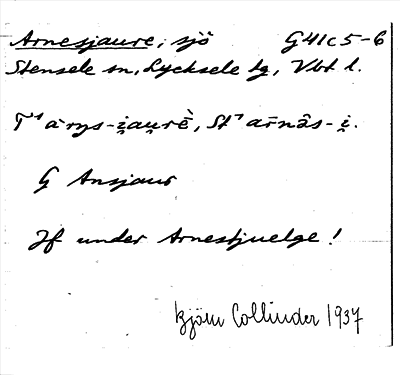 Arnesjaure, sjö G41c5-6
Stensele sn, Lycksele tg, Vbt l.
T¹ St¹ arnâs-i̯.
G Ansjaur
Jf under Arnestjuelge!
Björn Collinder 1937